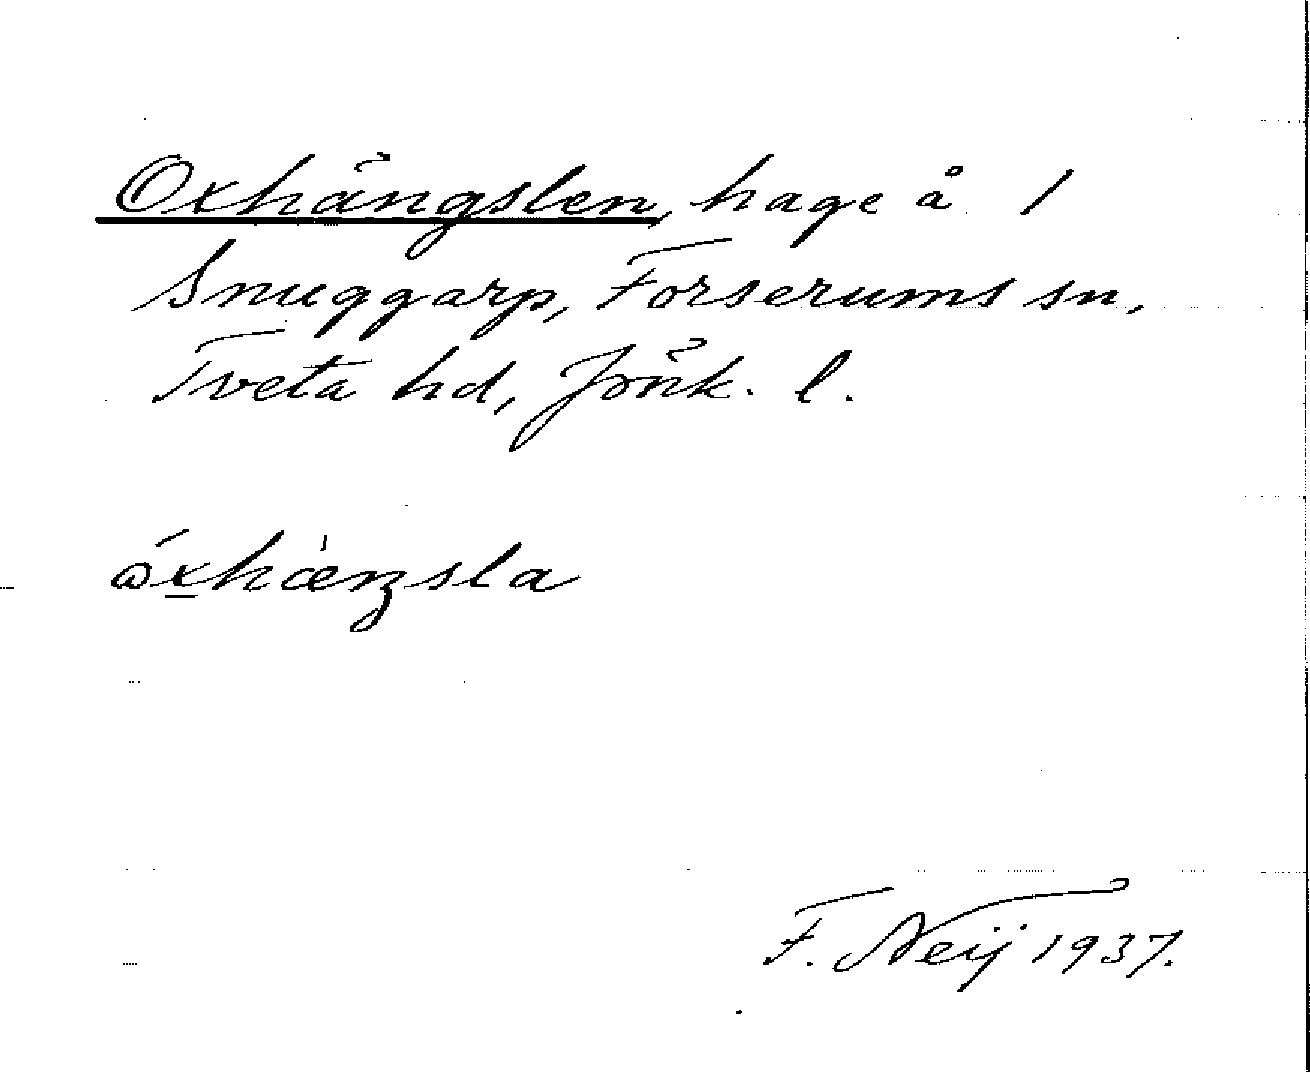 Oxhängslen, hage å 1
Snuggarp, Forserums sn,
Tveta hd, Jönk. l.
ɷ́x̲hæ̀ŋsla
F. Neij 1937.